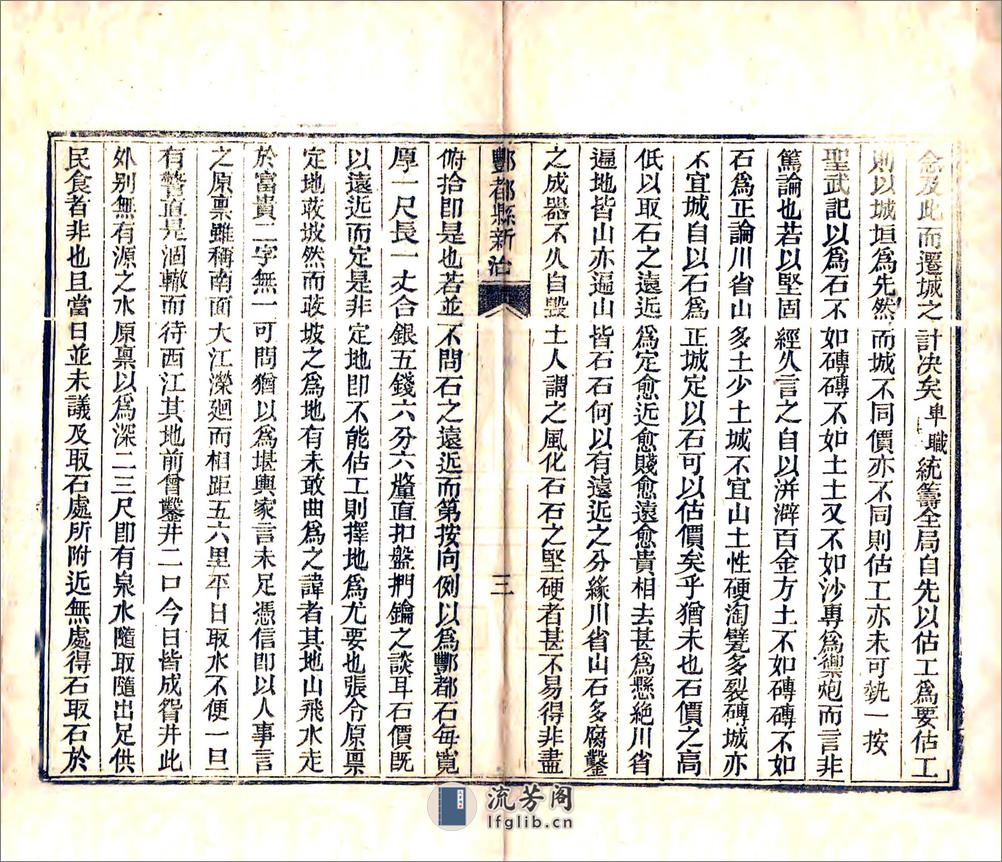 念及此而遷城之計决矣卑職統籌全局自先以估工爲要估工
則以城垣爲先然而城不同價亦不同則估工亦未可執一按
聖武記以爲石不如磚磚不如土土又不如沙專爲禦炮而言非
篤論也若以堅固經久言之自以洴澼百金方土不如磚磚不如
石爲正論川省山多土少土城不宜山土性硬淘甓多裂磚城亦
不宜城自以石爲正城定以石可以估價矣乎猶未也石價之高
低以取石之遠近爲定愈近愈賤愈遠愈貴相去甚爲懸絶川省
遍地皆山亦遍山皆石石何以有遠近之分緣川省山石多腐鑿
之成器不久自毀土人謂之風化石石之堅硬者甚不易得非盡
酆都縣新治
三
俯拾即是也若並不問石之遠近而第按向例以爲酆都石每寬
厚一尺長一丈合銀五錢六分六釐直扣盤捫鑰之談耳石價既
以遠近而定是非定地即不能估工則擇地爲尤要也張令原禀
定地敢坡然而敢坡之爲地有未敢曲爲之諱者其地山飛水走
於富貴二字無一可問猶以爲堪輿家言未足憑信即以人事言
之原禀雖稱南面大江濚廻而相距五六里平日取水不便一旦
有警直是涸轍而待西江其地前曾鑿井二口今日皆成眢井此
外别無有源之水原禀以爲深二三尺即有泉水隨取隨出足供
民食者非也且當日並未議及取石處所附近無處得石取石於
流芳阁
lfglib.cn